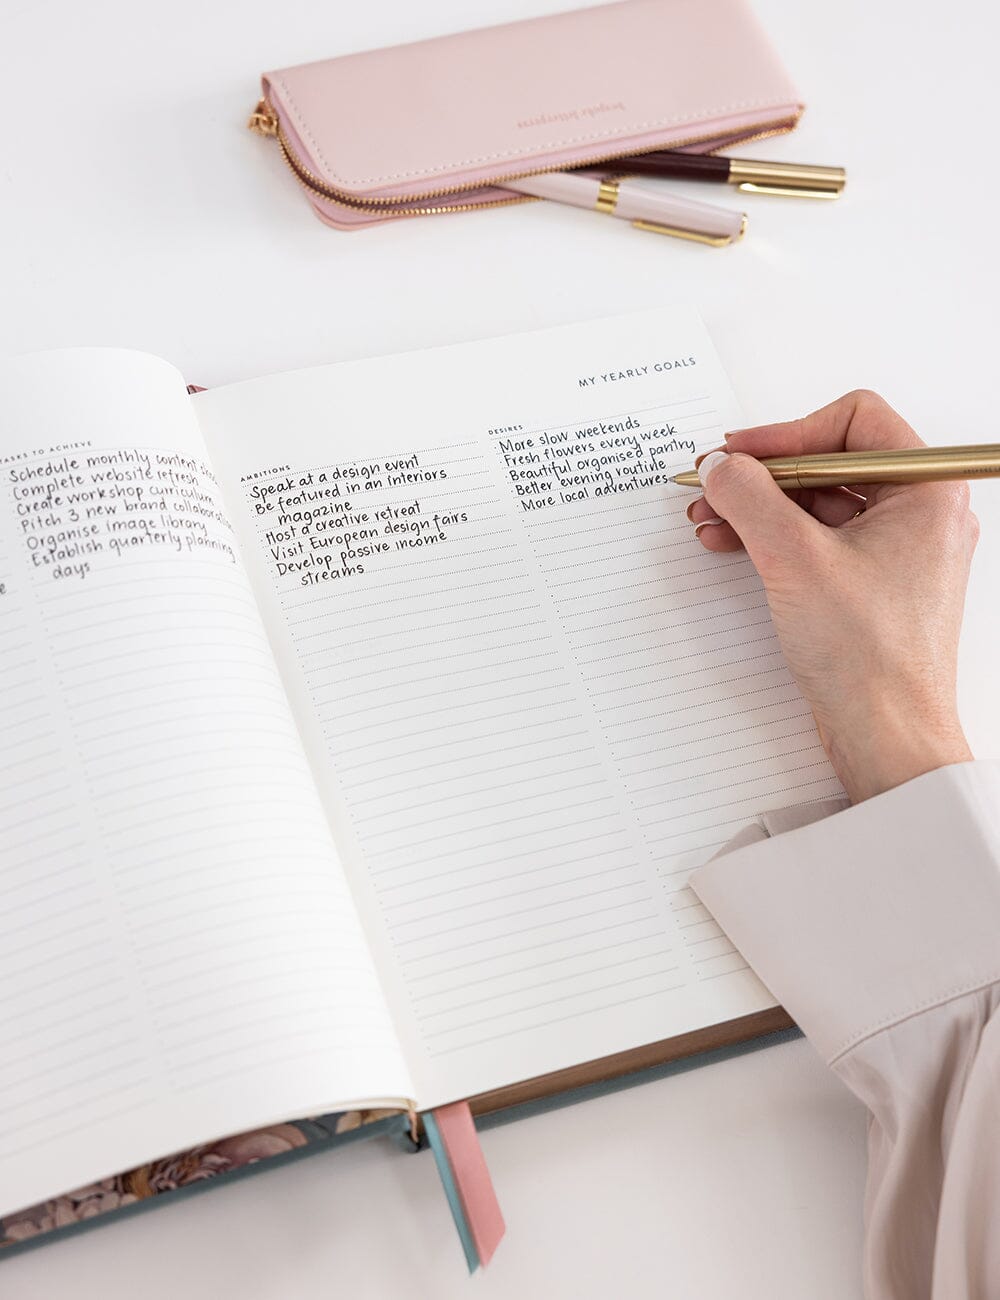 bespoke letterpress
MY YEARLY GOALS
TASKS TO ACHIEVE
Schedule monthly content
Complete website refresh
Create workshop curriculum
Pitch 3 new brand
Organise image library
Establish quarterly planning
days
AMBITIONS
Speak at a design event
Be featured in an interiors
magazine
Host a creative retreat
Visit European design fairs
Develop passive income
streams
DESIRES
More slow weekends
Fresh flowers every week
Beautiful organised pantry
Better evening routine
More local adventures